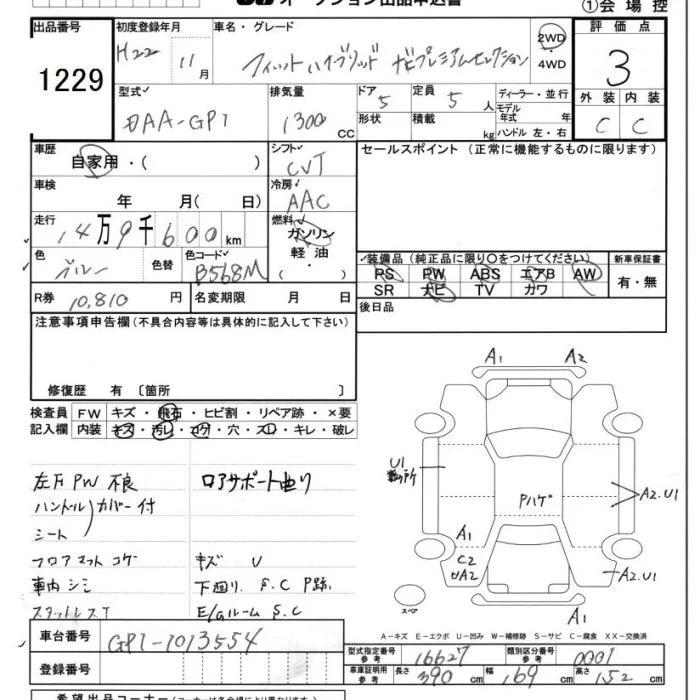 オークション出品申込書
①会場控
出品番号 初度登録年月 車名・グレード 評価点
1229 H22 11月 フィットハイブリッド ナビプレミアムセレクション 2WD・4WD 3
型式 排気量 ドア 定員 ディーラー・並行 外装 内装
DAA-GP1 1300CC 5 5人 モデル年式 年式 C C
形状 積載 kg ハンドル 左・右
車歴 シフト セールスポイント (正常に機能するものに限ります)
自家用・( ) CVT
車検 冷房
年 月( 日) AAC
走行 燃料
14万9千600km ガソリン
軽油・( )
色 色替 色コード 装備品(純正品に限り〇をつけてください) 新車保証書
ブルー B568M PS PW ABS エアB AW 有・無
SR ナビ TV カワ
R券 10,810円 名変期限 月 日 後日品
注意事項申告欄(不具合内容等は具体的に記入して下さい)
修復歴 有 〔箇所 〕
検査員 FW キズ・飛石・ヒビ割・リペア跡・×要
記入欄 内装 キズ・汚レ・コゲ・穴・スレ・キレ・破レ
A1 A2
左万PW不良 ロアサポート曲り
U1 数ヶ所
Pハゲ
A2.U1
ハンドル カバー付
シート
A1
フロアマットコゲ キズ U
C2
UA2
車内シミ 下廻り S.C P跡
A2.U1
スタッドレスT E/gルーム S.C
スペア
A1
A−キズ E−エクボ U−凹み W−補修跡 S−サビ C−腐食 XX−交換済
車台番号 GP1-1013554
型式指定番号 参考 16627 類別区分番号 参考 0001
登録番号
車庫証明用 参考 長さ 390cm 幅 169cm 高さ 152cm
希望出品コーナー